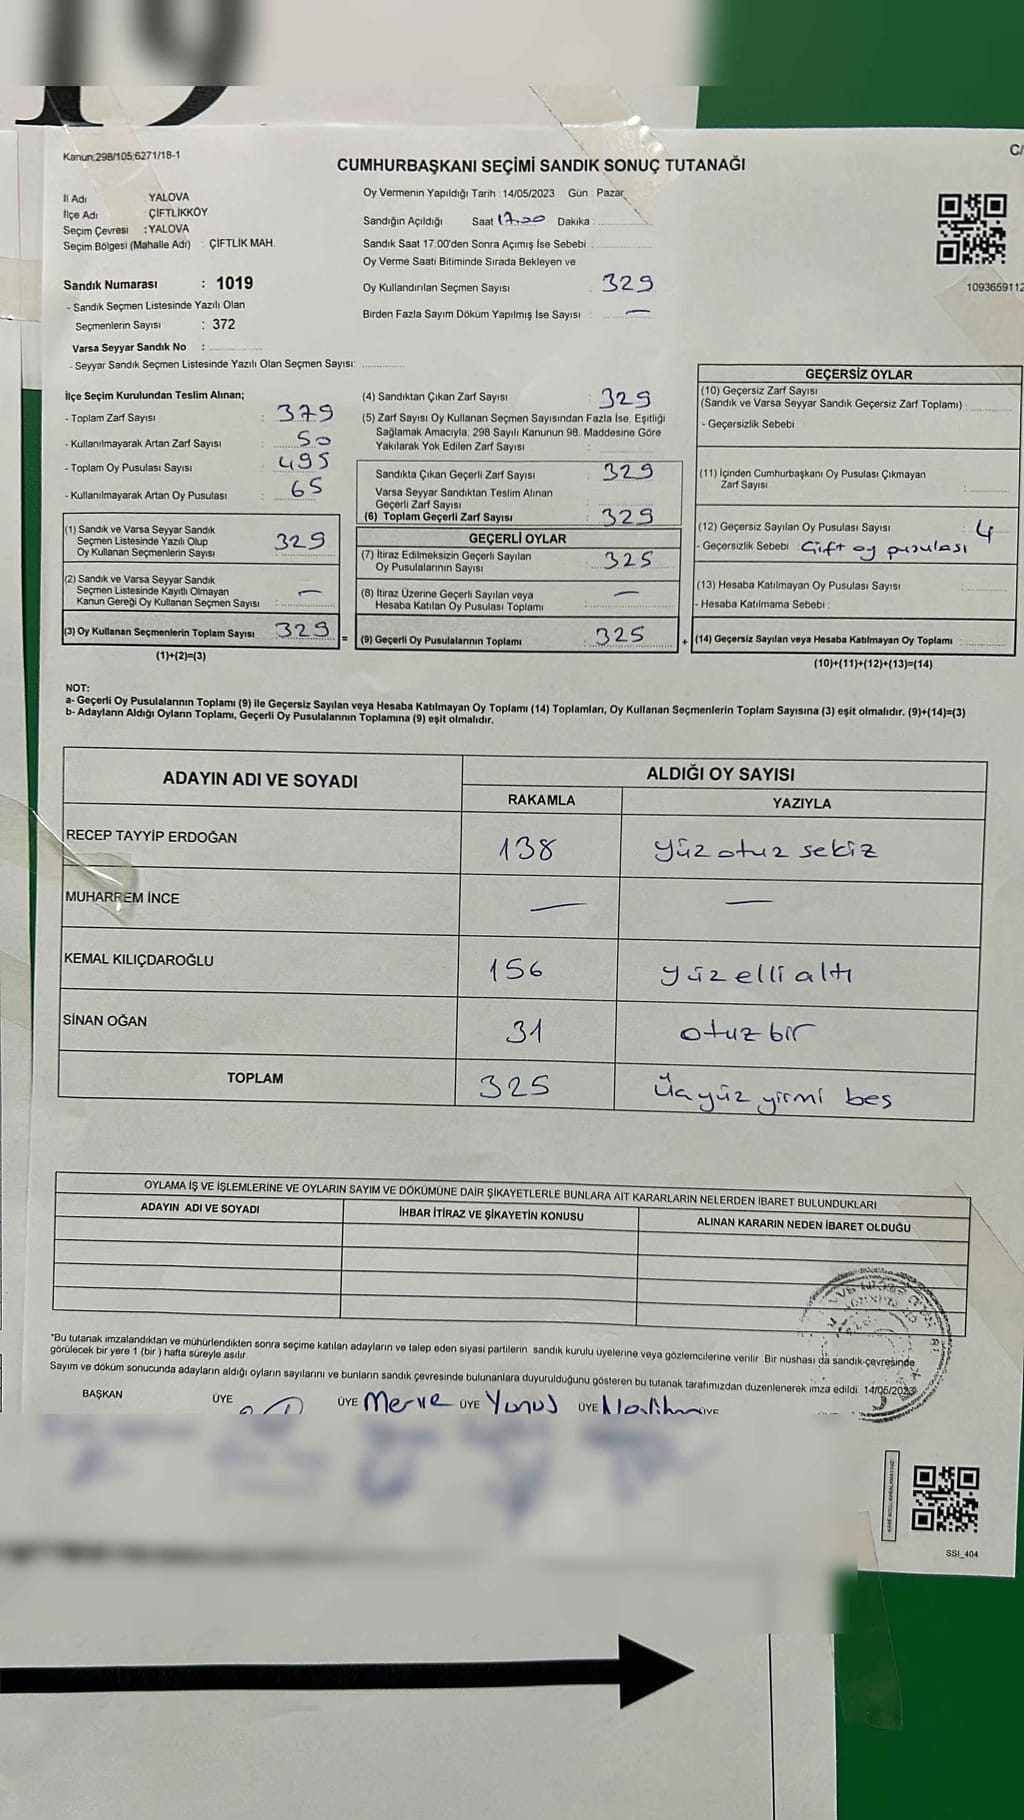 19
Kanun:298/105;6271/18-1
C/
CUMHURBAŞKANI SEÇİMİ SANDIK SONUÇ TUTANAĞI
İl Adı : YALOVA
İlçe Adı : ÇİFTLİKKÖY
Seçim Çevresi : YALOVA
Seçim Bölgesi (Mahalle Adı) : ÇİFTLİK MAH.
Oy Vermenin Yapıldığı Tarih : 14/05/2023 Gün : Pazar
Sandığın Açıldığı Saat 17.00 Dakika :
Sandık Saat 17:00'den Sonra Açımış İse Sebebi :
Oy Verme Saati Bitiminde Sırada Bekleyen ve
Oy Kullandırılan Seçmen Sayısı : 329
Birden Fazla Sayım Döküm Yapılmış İse Sayısı : —
1093659112
Sandık Numarası : 1019
- Sandık Seçmen Listesinde Yazılı Olan
Seçmenlerin Sayısı : 372
Varsa Seyyar Sandık No :
- Seyyar Sandık Seçmen Listesinde Yazılı Olan Seçmen Sayısı:
İlçe Seçim Kurulundan Teslim Alınan;
- Toplam Zarf Sayısı : 379
- Kullanılmayarak Artan Zarf Sayısı : 50
- Toplam Oy Pusulası Sayısı : 495
- Kullanılmayarak Artan Oy Pusulası : 65
(1) Sandık ve Varsa Seyyar Sandık
Seçmen Listesinde Yazılı Olup
Oy Kullanan Seçmenlerin Sayısı : 329
(2) Sandık ve Varsa Seyyar Sandık
Seçmen Listesinde Kayıtlı Olmayan
Kanun Gereği Oy Kullanan Seçmen Sayısı : —
(3) Oy Kullanan Seçmenlerin Toplam Sayısı : 329 =
(1)+(2)=(3)
(4) Sandıktan Çıkan Zarf Sayısı : 329
(5) Zarf Sayısı Oy Kullanan Seçmen Sayısından Fazla İse, Eşitliği
Sağlamak Amacıyla, 298 Sayılı Kanunun 98. Maddesine Göre
Yakılarak Yok Edilen Zarf Sayısı :
Sandıkta Çıkan Geçerli Zarf Sayısı : 329
Varsa Seyyar Sandıktan Teslim Alınan
Geçerli Zarf Sayısı
(6) Toplam Geçerli Zarf Sayısı : 329
GEÇERLİ OYLAR
(7) İtiraz Edilmeksizin Geçerli Sayılan
Oy Pusulalarının Sayısı : 325
(8) İtiraz Üzerine Geçerli Sayılan veya
Hesaba Katılan Oy Pusulası Toplamı : —
(9) Geçerli Oy Pusulalarının Toplamı : 325 +
GEÇERSİZ OYLAR
(10) Geçersiz Zarf Sayısı
(Sandık ve Varsa Seyyar Sandık Geçersiz Zarf Toplamı) :
- Geçersizlik Sebebi :
(11) İçinden Cumhurbaşkanı Oy Pusulası Çıkmayan
Zarf Sayısı :
(12) Geçersiz Sayılan Oy Pusulası Sayısı : 4
- Geçersizlik Sebebi : Çift oy pusulası
(13) Hesaba Katılmayan Oy Pusulası Sayısı :
- Hesaba Katılmama Sebebi :
(14) Geçersiz Sayılan veya Hesaba Katılmayan Oy Toplamı :
(10)+(11)+(12)+(13)=(14)
NOT:
a- Geçerli Oy Pusulalarının Toplamı (9) ile Geçersiz Sayılan veya Hesaba Katılmayan Oy Toplamı (14) Toplamları, Oy Kullanan Seçmenlerin Toplam Sayısına (3) eşit olmalıdır. (9)+(14)=(3)
b- Adayların Aldığı Oyların Toplamı, Geçerli Oy Pusulalarının Toplamına (9) eşit olmalıdır.
ADAYIN ADI VE SOYADI ALDIĞI OY SAYISI
RAKAMLA YAZIYLA
RECEP TAYYİP ERDOĞAN 138 yüz otuz sekiz
MUHARREM İNCE — —
KEMAL KILIÇDAROĞLU 156 yüz elli altı
SİNAN OĞAN 31 otuz bir
TOPLAM 325 üçyüz yirmi beş
OYLAMA İŞ VE İŞLEMLERİNE VE OYLARIN SAYIM VE DÖKÜMÜNE DAİR ŞİKAYETLERLE BUNLARA AİT KARARLARIN NELERDEN İBARET BULUNDUKLARI
ADAYIN ADI VE SOYADI İHBAR İTİRAZ VE ŞİKAYETİN KONUSU ALINAN KARARIN NEDEN İBARET OLDUĞU
*Bu tutanak imzalandıktan ve mühürlendikten sonra seçime katılan adayların ve talep eden siyasi partilerin sandık kurulu üyelerine veya gözlemcilerine verilir. Bir nüshası da sandık çevresinde
görülecek bir yere 1 (bir ) hafta süreyle asılır.
Sayım ve döküm sonucunda adayların aldığı oyların sayılarını ve bunların sandık çevresinde bulunanlara duyurulduğunu gösteren bu tutanak tarafımızdan düzenlenerek imza edildi. 14/05/2023
BAŞKAN ÜYE ÜYE Merve ÜYE Yunus ÜYE
SSI_404